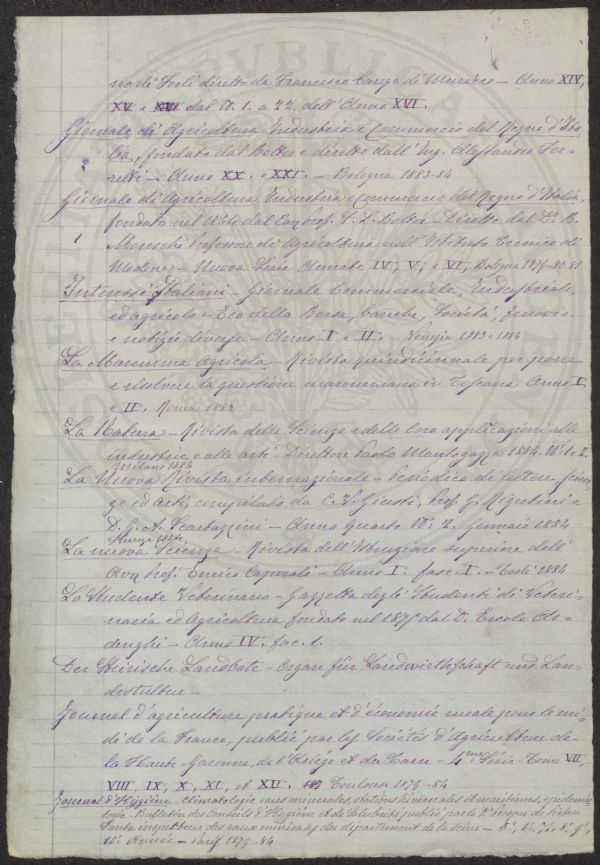 no di Forlì diretto da Francesco Canga di Murizo - Anno XIV,
XV e XVI dal N. 1. a 22. dell'Anno XVI.
Giornale di Agricoltura Industria e Commercio del Regno d'Ita-
lia, fondato dal Botter e diretto dall'Ing. Alessandro Fer-
retti - Anno XX. e XXI. - Bologna 1883-84
Giornale di Agricoltura Industria e Commercio del Regno d'Italia,
fondato nel 1864 dal Cav. Prof. F. L. Botter - Diretto dal Dr. B.
Moreschi Professore di Agricoltura nell'Istituto Tecnico di
Modena - Nuova Serie Annate IV, V, e VI, Bologna 1879-80-81
Interessi Italiani - Giornale Commerciale, Industriale,
ed agricolo - Eco della Borsa, banche, Società, ferrovie
e notizie diverse - Anno I e II, - Venezia 1883-1884
La Maremma Agricola - Rivista quindicinnale per porre
e risolvere la questione maremmana in Toscana Anno I,
e II. Roma 1884
La Natura - Rivista delle Scienze e delle loro applicazioni alle
industrie e alle arti Direttore Paolo Mantegazza 1884. N. 1. 2.
Milano 1884
La Nuova Rivista internazionale - Periodico di lettere, scien-
ze ed arti, compilato da C. V. Giusti, Prof. G. Rigutini e
D. G. A. Scartazzini - Anno quarto N. 7. Gennaio 1884
Firenze 1884.
La nuova Scienza - Rivista dell'Istruzione superiore dell'
Avv. Prof. Enrico Caporali - Anno I. fasc. I. - Todi 1884
Lo Studente Veterinario - Gazzetta degli Studenti di Veteri-
naria ed Agricoltura fondato nel 1875 dal D. Ercole Ar-
denghi - Anno IV. fac. 1.
Der Steirische Landbote - Organ für Landwirthschaft und Lan-
descultur -
Journal d'agriculture pratique et d'économie rurale pour le mi-
di de la France, publié par les Sociétés d'Agriculture de
la Haute-Garonne, de l'Ariége et du Tarn - 4me Série - Tome VII,
VIII IX, X, XI, et XII. Toulouse 1879-84
Journal d'Hygiène - Climatologie eaux minerales, stations hivernales et maritimes, epidemio-
logie - Bulletin des Conseils d'Hygiène et de Salubrité publié par le Dr. Prosper de Pietra
Santa inspecteur des eaux minerales du departement de la Seine - 5e, 6e, 7e, 8e, 9e,
10e Année - Paris 1879-84